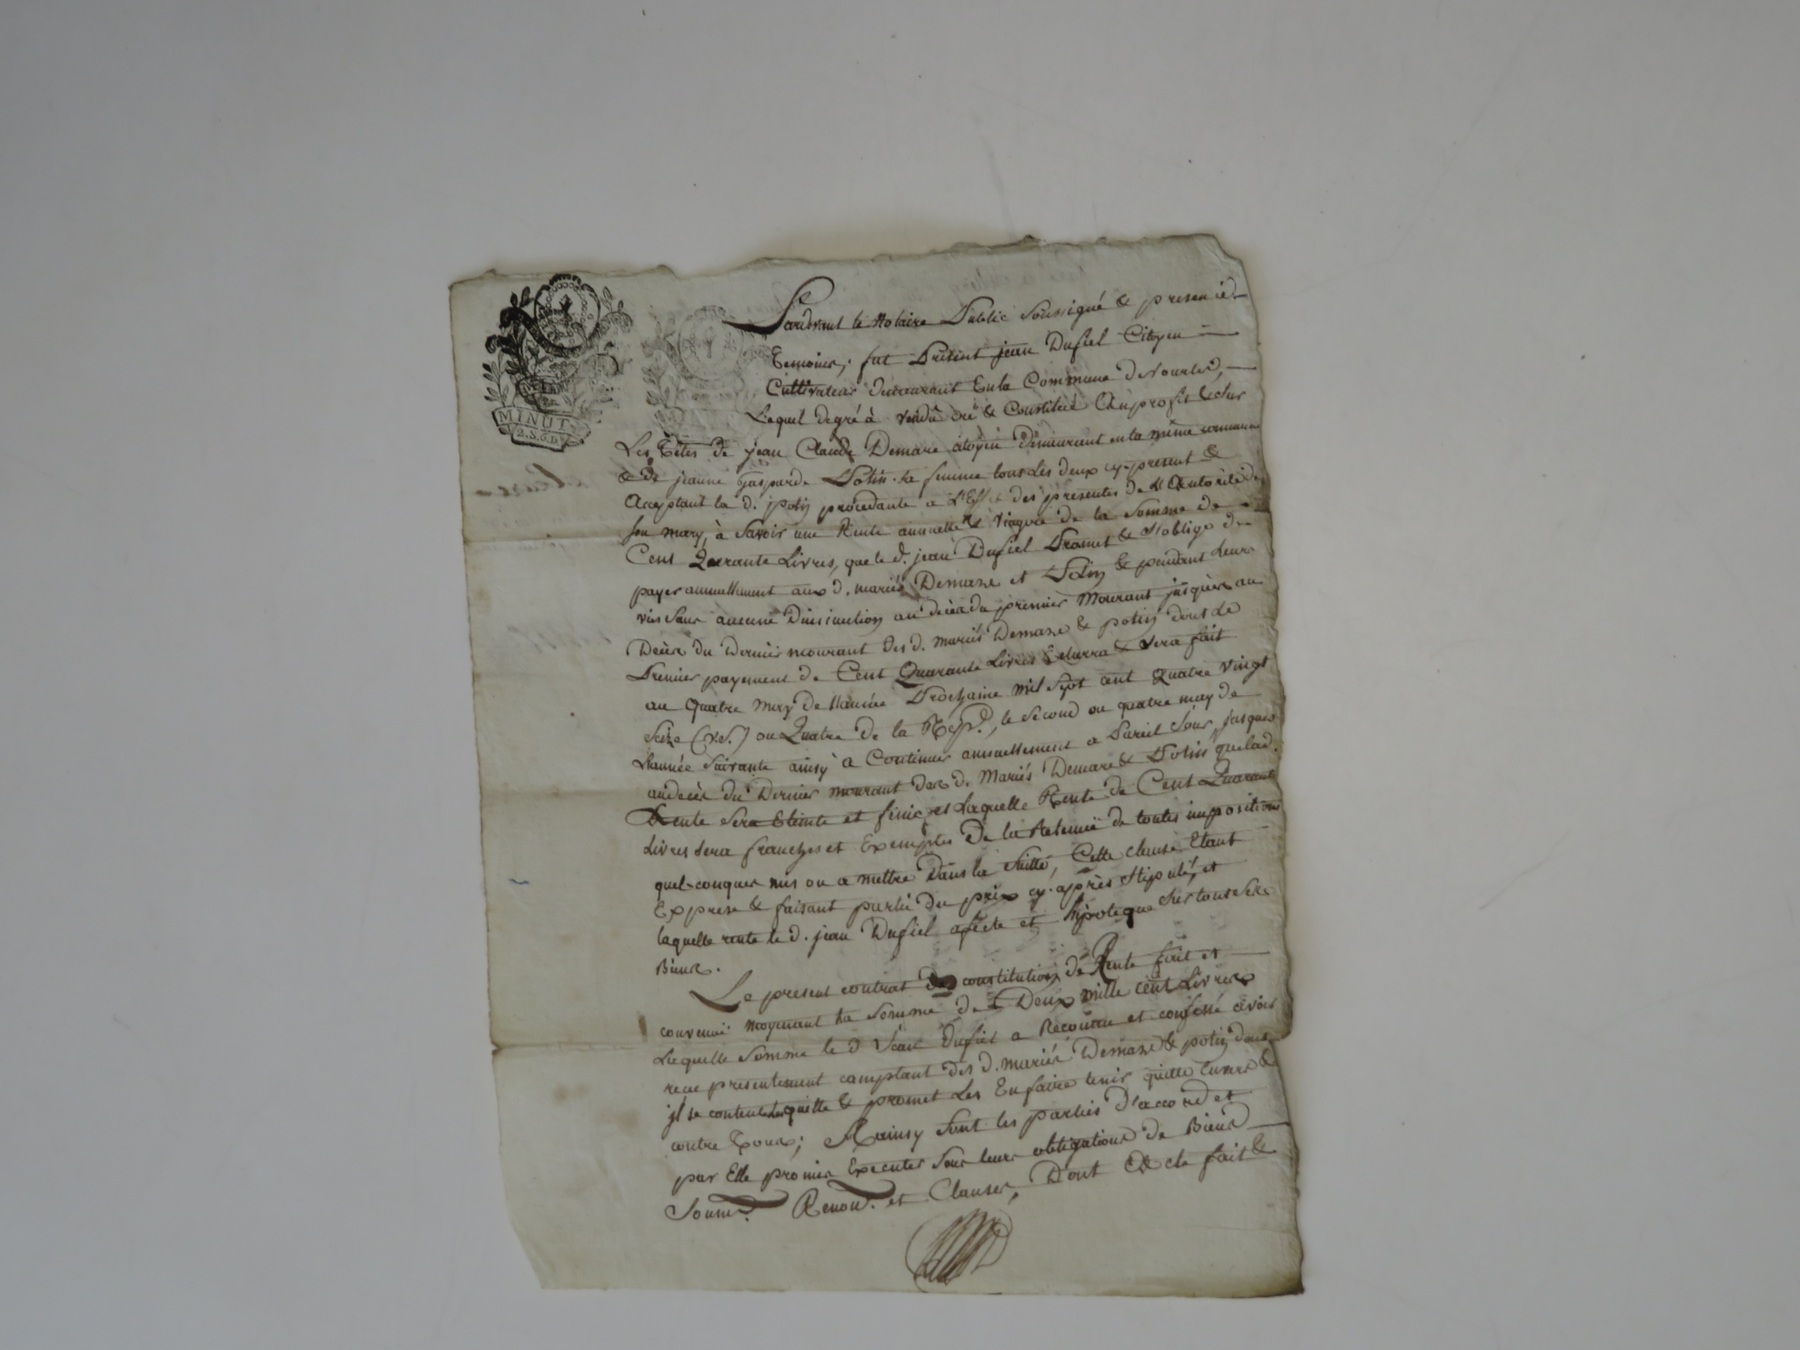 MINUT
2.S.6.D
Pardevant le Notaire Public Soussigné & presence
Temoins, fut Présent jean Dufiel Citoyen
Cultivateur demeurant En la Commune de
Lequel de gré à vendû & Constitué Au profit & sur
Les Têtes de jean Claude Demare citoyen demeurant en la même commune
& de jeanne Gasparde Potin sa femme tous les deux cy-present &
Acceptant la d. potin procedante a L'Effet des presentes de L'Autorité de
son mary, à Savoir une Rente annuelle & viagere de la Somme de
Cent Quarante Livres, que le d. jean Dufiel Promet & S'oblige de
payer annuellement aux d. mariés Demare et Potin & pendant Leur
vie Sans aucune Diminution au decès du premier Mourant jusques au
Decès du Dernier mourant des d. mariés Demare & potin dont Le
Premier payement de Cent Quarante Livres Echerra & Sera fait
au Quatre may de L'année Prochaine mil Sept cent Quatre vingt
Seize (v.S.) ou Quatre de la Rep., le Second au quatre may de
L'année Suivante ainsy a Continuer annuellement a Pareil Jour jusques
au decès du Dernier mourant des d. Mariés Demare & Potin que lad.
Rente Sera Eteinte et finie, et Laquelle Rente de Cent Quarante
Livres Sera franche et Exempte De la Retenue de toutes impositions
quelconques mis ou a mettre Dans la Suitte, Cette clause Etant
Expresse & faisant partie Du prix cy-après Stipulé, et
laquelle rente le d. jean Dufiel afecte et hipoteque Sur tous Ses
Biens.
Le present contrat de constitution de Rente fait et
convenu moyenant la Somme de Deux mille cent Livres
Laquelle Somme le d Jean Dufiel a Reconnu et confessé avoir
recue presentement comptant des d. mariés Demare & potin dont
jl se contente quitte & promet Les En faire tenir quitte Envers &
contre Tous; Ainsy Sont les parties D'accord et
par Elle promis Executer Sous leurs obligations de Biens
Soum. Renon. et Clauses, Dont Acte fait &